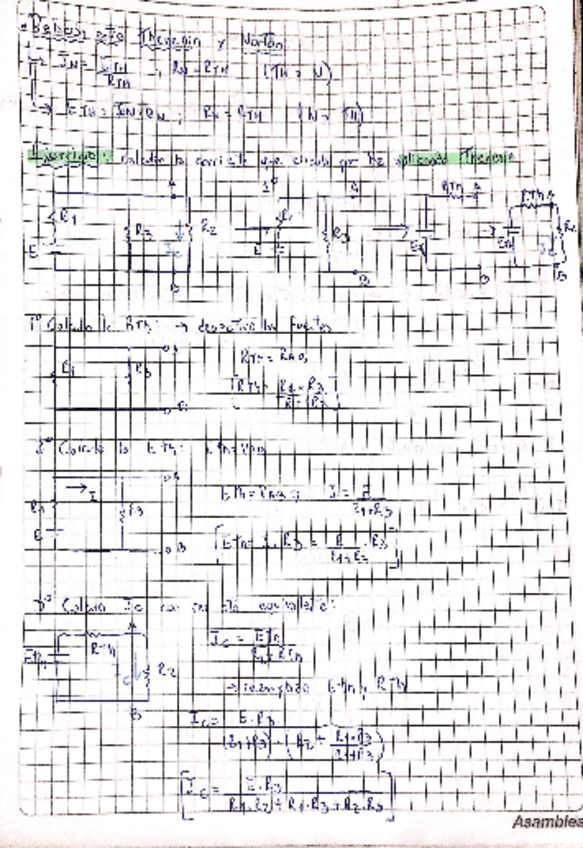 Thevenin y Norton
IN = ETH / RTH ; RN = RTH (TH → N)
ETH = IN · RN ; RN = RTH (N → TH)
Ejercicio: calcular la corriente que circula por R2 aplicando Thevenin
A 1º A RTH A RTH A
R1 R3 R2 R3
E IC E
B B B B
1º Calculo la RTH: → desactivo las fuentes
A
R1 R3 RTH = RAB
RTH = R1 · R3 / R1 + R3
B
2º Calculo la ETH: ETH = VAB
A
I
R1 R3 I = E / R1 + R3
E B ETH = I · R3 = E / R1 + R3 · R3
3º Calculo IC con cto equivalente:
ETH RTH R2 IC = ETH / R2 + RTH
→ reemplazo ETH y RTH
B
IC = E · R3 / (R1 + R3) · (R2 + R1 · R3 / R1 + R3)
IC = E · R3 / R1 · R2 + R1 · R3 + R2 · R3
Asamblea